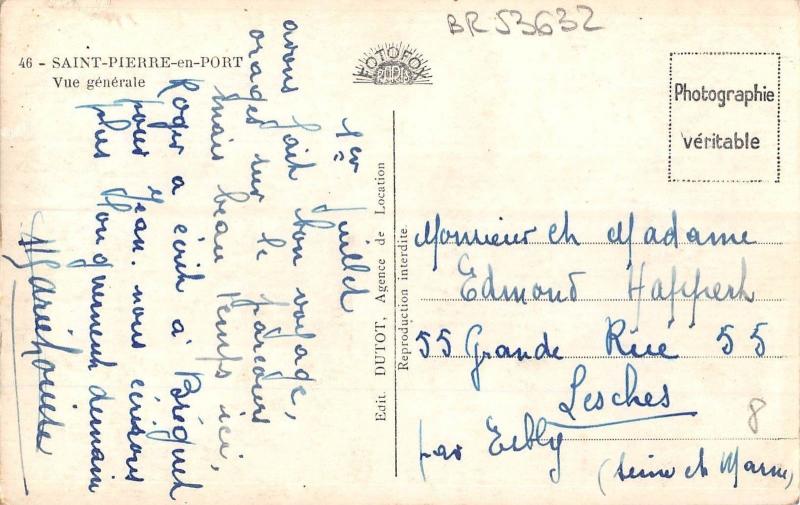 BR53632
46 - SAINT-PIERRE-en-PORT
Vue générale
FOTOFOX
PARIS
Photographie
véritable
1er Juillet
avons fait bon voyage,
orages sur le parcours
mais beau temps ici,
Roger a écrit à Bréguet
pour Jean. nous écrirons
plus longuement demain
Marielouise
Edit. DUTOT, Agence de Location
Reproduction interdite.
Monsieur et Madame
Edmond
55 Grande Rue 55
Lesches
par Esbly
(Seine et Marne)
8